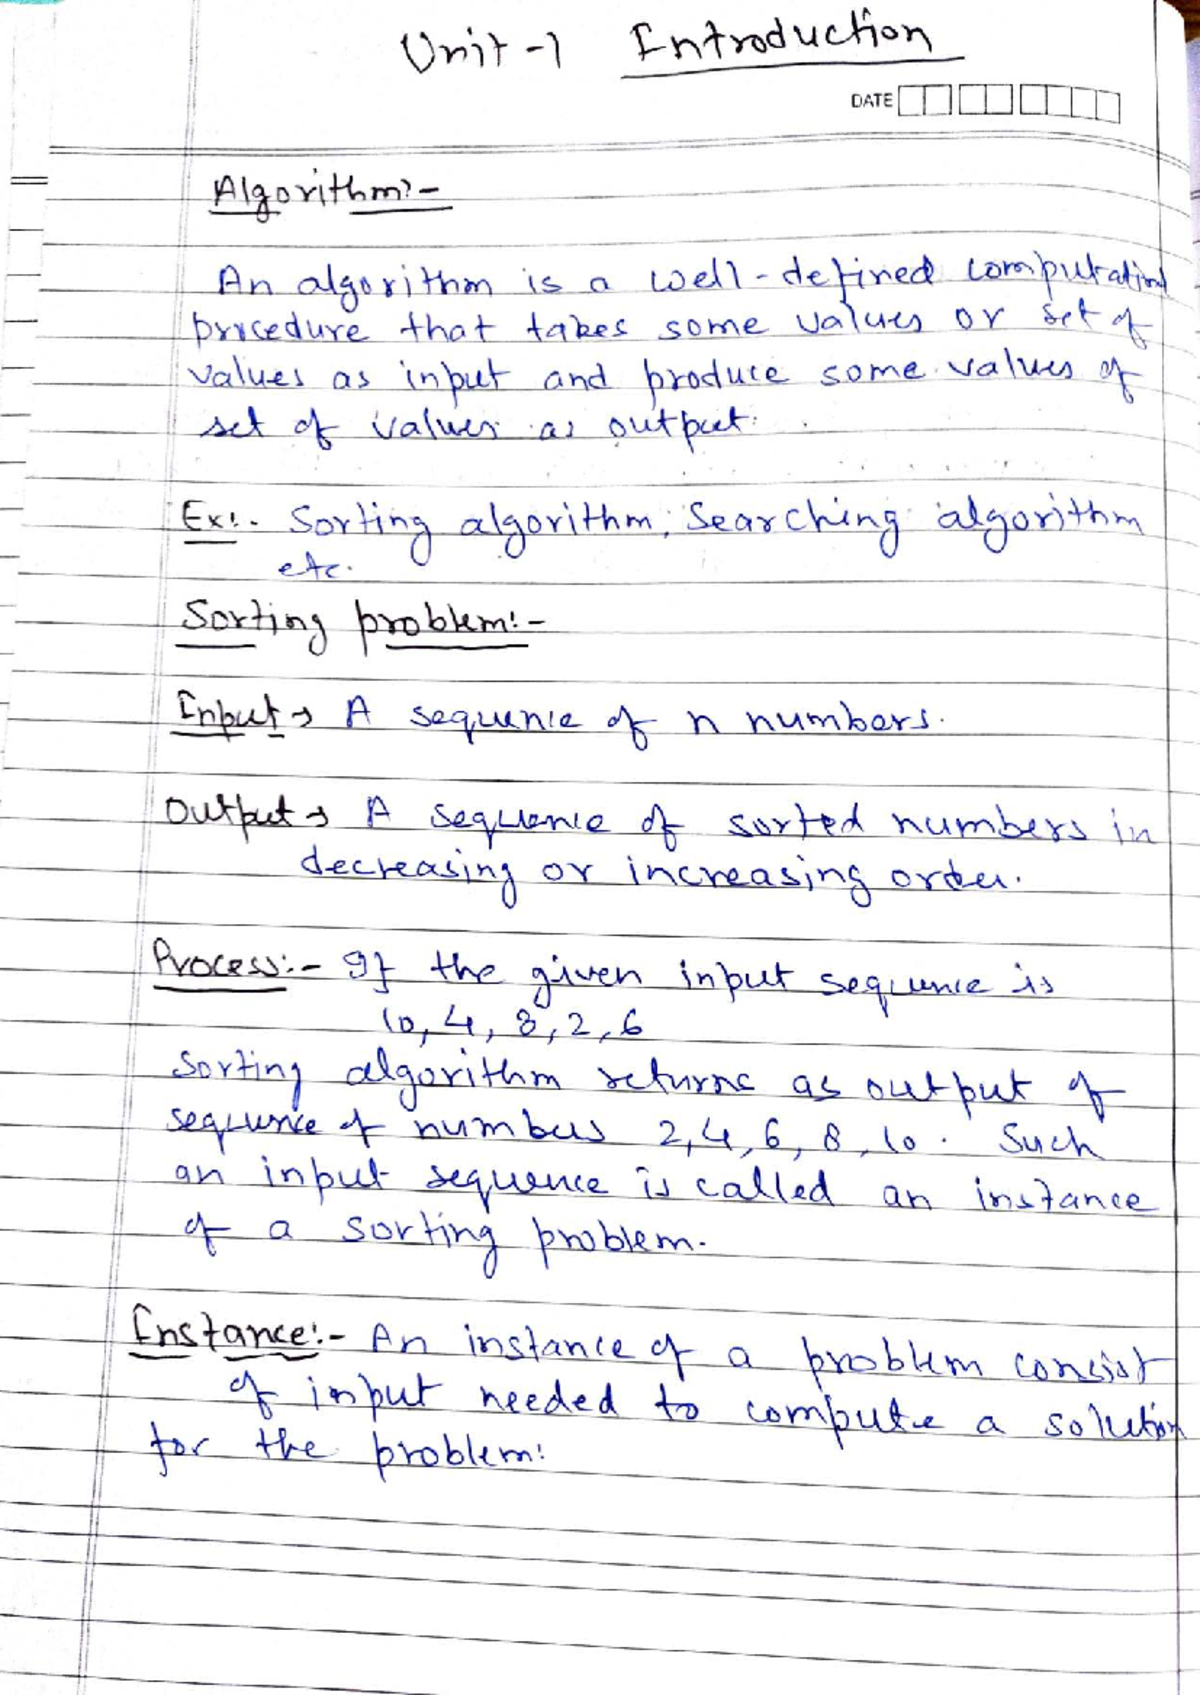 Unit-1 Introduction
DATE
Algorithm:-
An algorithm is a well-defined computational
procedure that takes some values or set of
values as input and produce some values of
set of values as output.
Ex:- Sorting algorithm, Searching algorithm
etc.
Sorting problem:-
Input → A sequence of n numbers.
Output → A sequence of sorted numbers in
decreasing or increasing order.
Process:- If the given input sequence is
10, 4, 8, 2, 6
Sorting algorithm returns as output of
sequence of numbers 2, 4, 6, 8, 10. Such
an input sequence is called an instance
of a sorting problem.
Instance:- An instance of a problem consist
of input needed to compute a solution
for the problem: